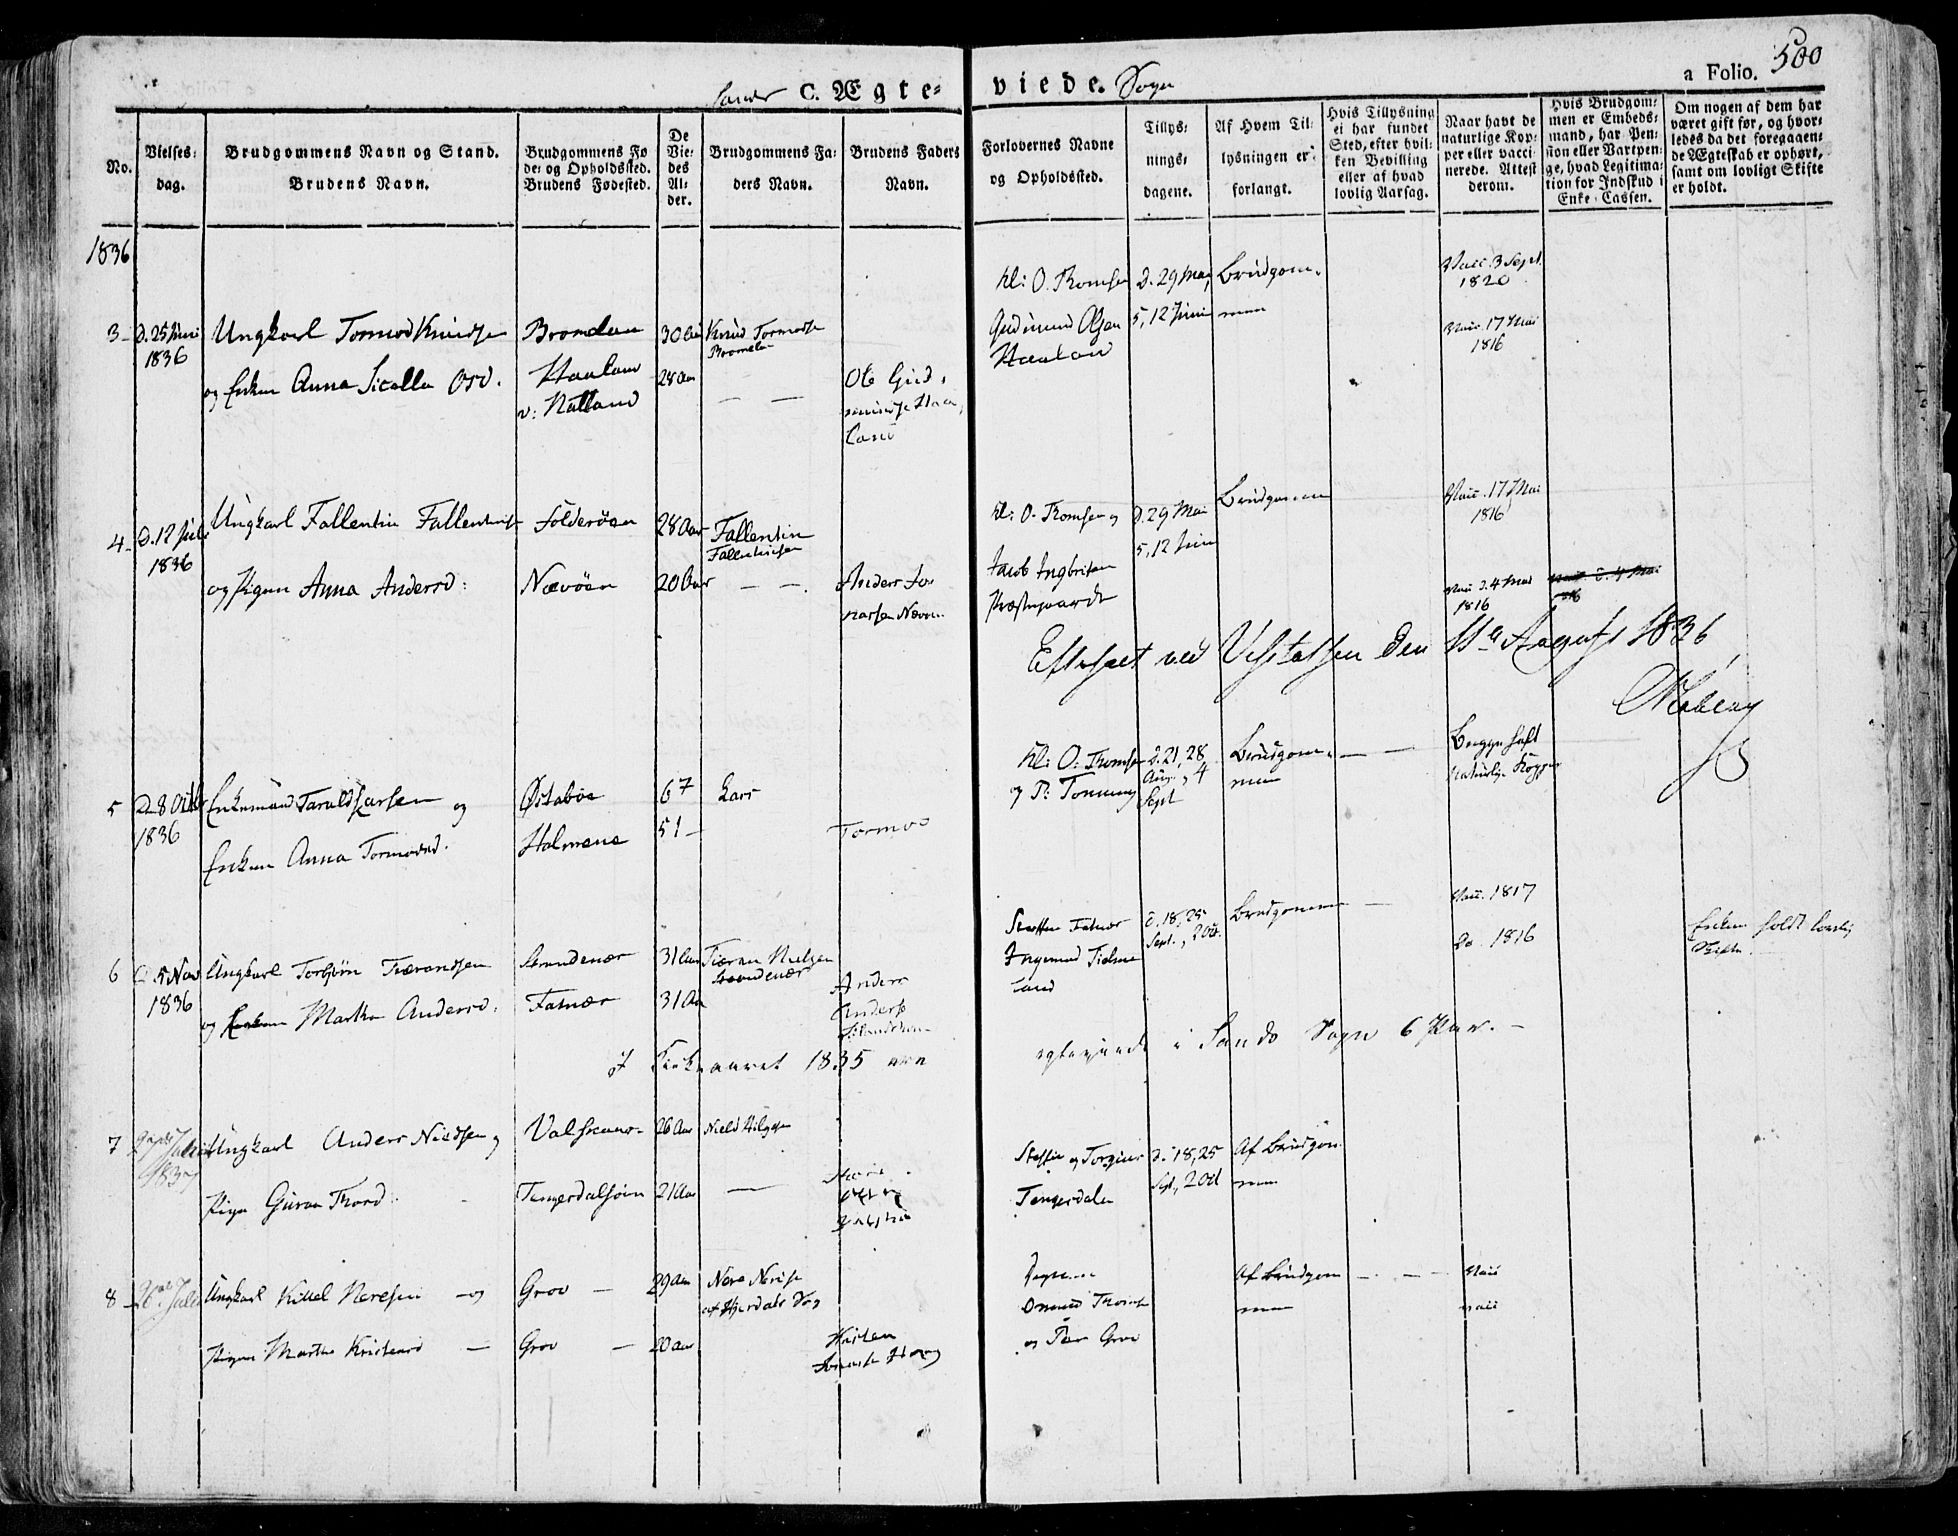 Sands C. Ægte- viede. Sogn
a Folio. 500
No.
Vielses-
dag.
Brudgommens Navn og Stand.
Brudens Navn.
Brudgommens Fø
de- og Opholdssted.
Brudens Fødested.
De
Vie-
des
Al-
der.
Brudgommens Fa-
ders Navn.
Brudens Faders
Navn.
Forlovernes Navne
og Opholdssted.
Tillys-
nings-
dagene.
Af Hvem Til-
lysningen er
forlangt.
Hvis Tillysning
ei har fundet
Sted, efter hvil-
ken Bevilling
eller af hvad
lovlig Aarsag.
Naar havt de
naturlige Kop-
per eller vacci-
nerede. Attest
derom.
Hvis Brudgom-
men er Embeds-
mand, har Pen-
sion eller Vartpen-
ge, hvad Legitima-
tion for Indskud i
Enke-Cassen.
Om nogen af dem har
været gift før, og hvor-
ledes da det foregaaen-
de Ægteskab er ophørt,
samt om lovligt Skifte
er holdt.
1836
3 d. 25 Juni
1836
Ungkarl Tormod Knudse
og Enken Anna Sicella Osd.
Bromelan
Haaland
v: Natland
30 Aar
28 Aar
Knud Tormodse
Bromelan
Ole Gud-
mundse Haa-
land
kl: O. Thomsen
Gudmund Olsen
Haaland
d. 29 Mai,
5, 12 Juni
Brudgom-
men
Vacc. 3 Sept.
1820
Vacc. 17 Mai
1816
4 d. 12 Juli
1836
Ungkarl Fallentin Fallentinse
og Pigen Anna Andersd:
Folderöen
Nævöen
28 Aar
20 Aar
Fallentin
Fallentinsen
Anders Jo-
narsen Nævöen
kl: O. Thomsen og
Jacob Ingbritsen
Præstegaarde
d. 29 Mai
5, 12 Juni
Brudgommen
Vacc. 17 Mai
1816
Vacc d. 4 Mai
1816
Efterseet ved Visitatsen den 11te August 1836
5 d. 8 Octbr
1836
Enkemand Tarald Larsen og
Enken Anna Tormodsd.
Østabøe
Halmene
67
51
Lars
Tormod
kl: O: Thomsen
og P: Tonning
d. 21, 28
Aug., 4
Sept
Brudgom-
men
Begge havt
naturlige Kopper
6 d. 5 Nov
1836
Ungkarl Torbjörn Tiærandsen
og Enken Martha Andersd:
Strandenær
Fatnær
31 Aar
31 Aar
Tiæran Nielsen
Strandenær
Anders
Anderse
Steffen Fatnær
Ingemund Tielme-
land
d. 18, 25
Sept., 2 Oct.
Brudgommen
Vacc. 1817
Do 1816
Enken holdt lovlig
Skifte
I Kirkeaaret 1835 ere egteviede i Sands Sogn 6 Par.
7
Juli
1837
Ungkarl Anders Nielsen og
Pige Guroe Thord
Valskaar
Tengesdalsöien
26 Aar
21 Aar
Niels Helgesen
Steffen og Torgius
Tengesdalen
d. 18, 25
Sept., 2 Oct
Af Brudgom-
men
8 26de Juli
Ungkarl Kittel Neresen og
Pigen Martha Kristensd
Grov
Grov
29 Aar
20 Aar
Nere Nerise
af Hjerdals Sog
Kristen
Osmund Thomse
og Peer Grov
Af Brudgom-
men
Vacc
vacc